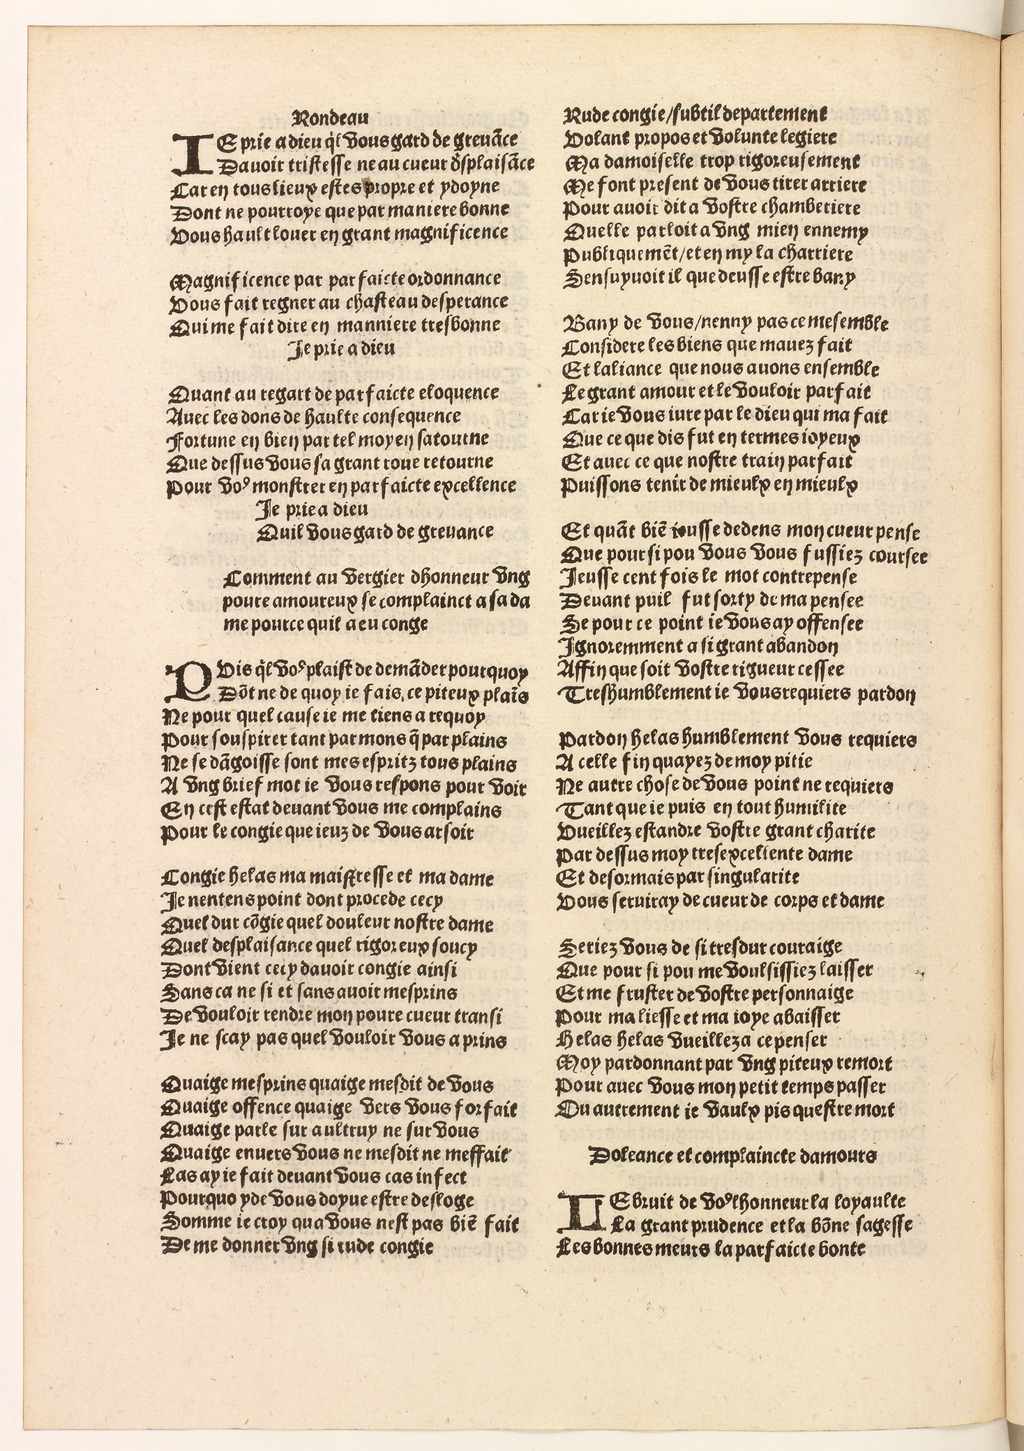 Rondeau
IE prie a dieu q̃l vous gard de greuāce
Dauoir tristesse ne au cueur d̃splaisāce
Car en tous lieux estes propre et ydoyne
Dont ne pourroye que par maniere bonne
Vous hault louer en grant magnificence
Magnificence par parfaicte ordonnance
Vous fait regner au chasteau desperance
Qui me fait dire en manniere tresbonne
Je prie a dieu
Quant au regart de parfaicte eloquence
Auec les dons de haulte consequence
Fortune en bien par tel moyen sa tourne
Que dessus vous sa grant roue retourne
Pour voꝰ monstrer en parfaicte excellence
Je prie a dieu
Quil vous gard de greuance
Comment au vergier dhonneur vng
poure amoureux se complainct a sa da
me pource quil a eu conge
PVis q̃l voꝰ plaist de demāder pourquoy
Dōt ne de quoy ie fais, ce piteux plaīs
Ne pour quel cause ie me tiens a requoy
Pour souspirer tant par mons q̃ par plains
Ne se dāgoisse sont mes espritz tous plains
A vng brief mot ie vous respons pour voir
En cest estat deuant vous me complains
Pour le congie que ieuz de vous arsoir
Congie helas ma maistresse et ma dame
Je nentens point dont procede cecy
Quel dur cōgie quel douleur nostre dame
Quel desplaisance quel rigoreux soucy
Dont vient cecy dauoir congie ainsi
Sans ca ne si et sans auoir mesprins
De vouloir rendre mon poure cueur transi
Je ne scay pas quel vouloir vous a prins
Quaige mesprins quaige mesdit de vous
Quaige offence quaige vers vous forfait
Quaige parle sur aultruy ne sur vous
Quaige enuers vous ne mesdit ne meffait
Las ay ie fait deuant vous cas infect
Pourquo yde vous doyue estre desloge
Somme ie croy qua vous nest pas biē fait
De me donner vng si rude congie
Rude congie/subtil departement
Volant propos et volunte legiere
Ma damoiselle trop rigoreusement
Me font present de vous tirer arriere
Pour auoir dit a vostre chamberiere
Quelle parloit a vng mien ennemy
Publiquemēt/et en my la charriere
Sensuyuoit il que deusse estre bany
Bany de vous/nenny pas ce me semble
Considere les biens que mauez fait
Et laliance que nous auons ensemble
Le grant amour et le vouloir parfait
Car ie vous iure par le dieu qui ma fait
Que ce que dis fut en termes ioyeux
Et auec ce que nostre train parfait
Puissons tenir de mieulx en mieulx
Et quāt biē ieusse dedens mon cueur pense
Que pour si pou vous vous fussiez coursee
Jeusse cent fois le mot contrepense
Deuant puil fut sorty de ma pensee
Se pour ce point ie vous ay offensee
Ignoremment a si grant abandon
Affin que soit vostre rigueur cessee
Treshumblement ie vous requiers pardon
Pardon helas humblement vous requiers
A celle fin quayez de moy pitie
Ne autre chose de vous point ne requiers
Tant que ie puis en tout humilite
Vueillez estandre vostre grant charite
Par dessus moy tresexcellente dame
Et desormais par singularite
Vous seruiray de cueur de corps et dame
Seriez vous de si tresdur couraige
Que pour si pou me voulsissiez laisser
Et me fruster de vostre personnaige
Pour ma liesse et ma ioye abaisser
Helas helas vueillez a ce penser
Moy pardonnant par vng piteux remort
Pour auec vous mon petit temps passer
Ou autrement ie vaulx pis questre mort
Doleance et complaincte damours
LE bruit de voꝰ lhonneur la loyaulte
La grant prudence et la bōne sagesse
Les bonnes meurs la parfaicte bonte